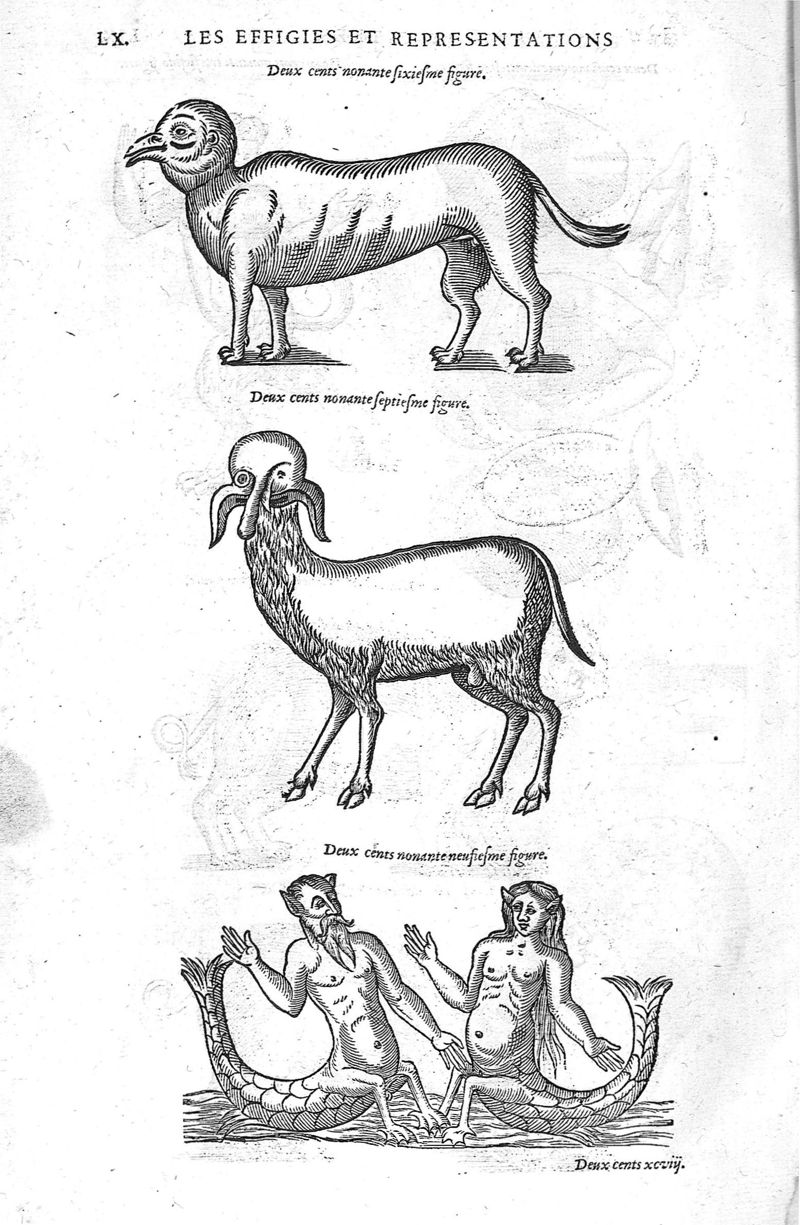 LX. LES EFFIGIES ET REPRESENTATIONS
Deux cents nonante ſixieſme figure.
Deux cents nonante ſeptieſme figure.
Deux cents nonante neufieſme figure.
Deux cents xcviij.